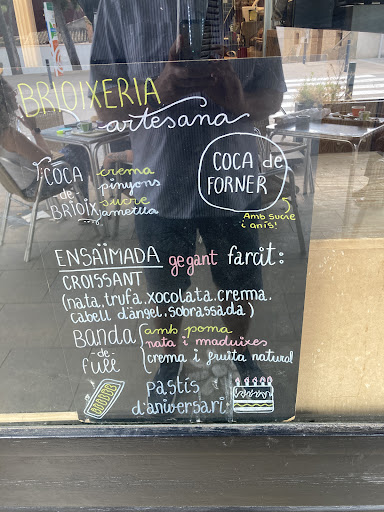 BRIOIXERIA
artesana
COCA
de
BRIOIX
crema
pinyons
sucre
ametlla
COCA de
FORNER
Amb sucre
i anís!
ENSAÏMADA gegant farcit:
CROISSANT
(nata, trufa, xocolata, crema,
cabell d'àngel, sobrassada)
Banda
de
full
amb poma
nata i maduixes
crema i fruita natural
pastís
d'aniversari